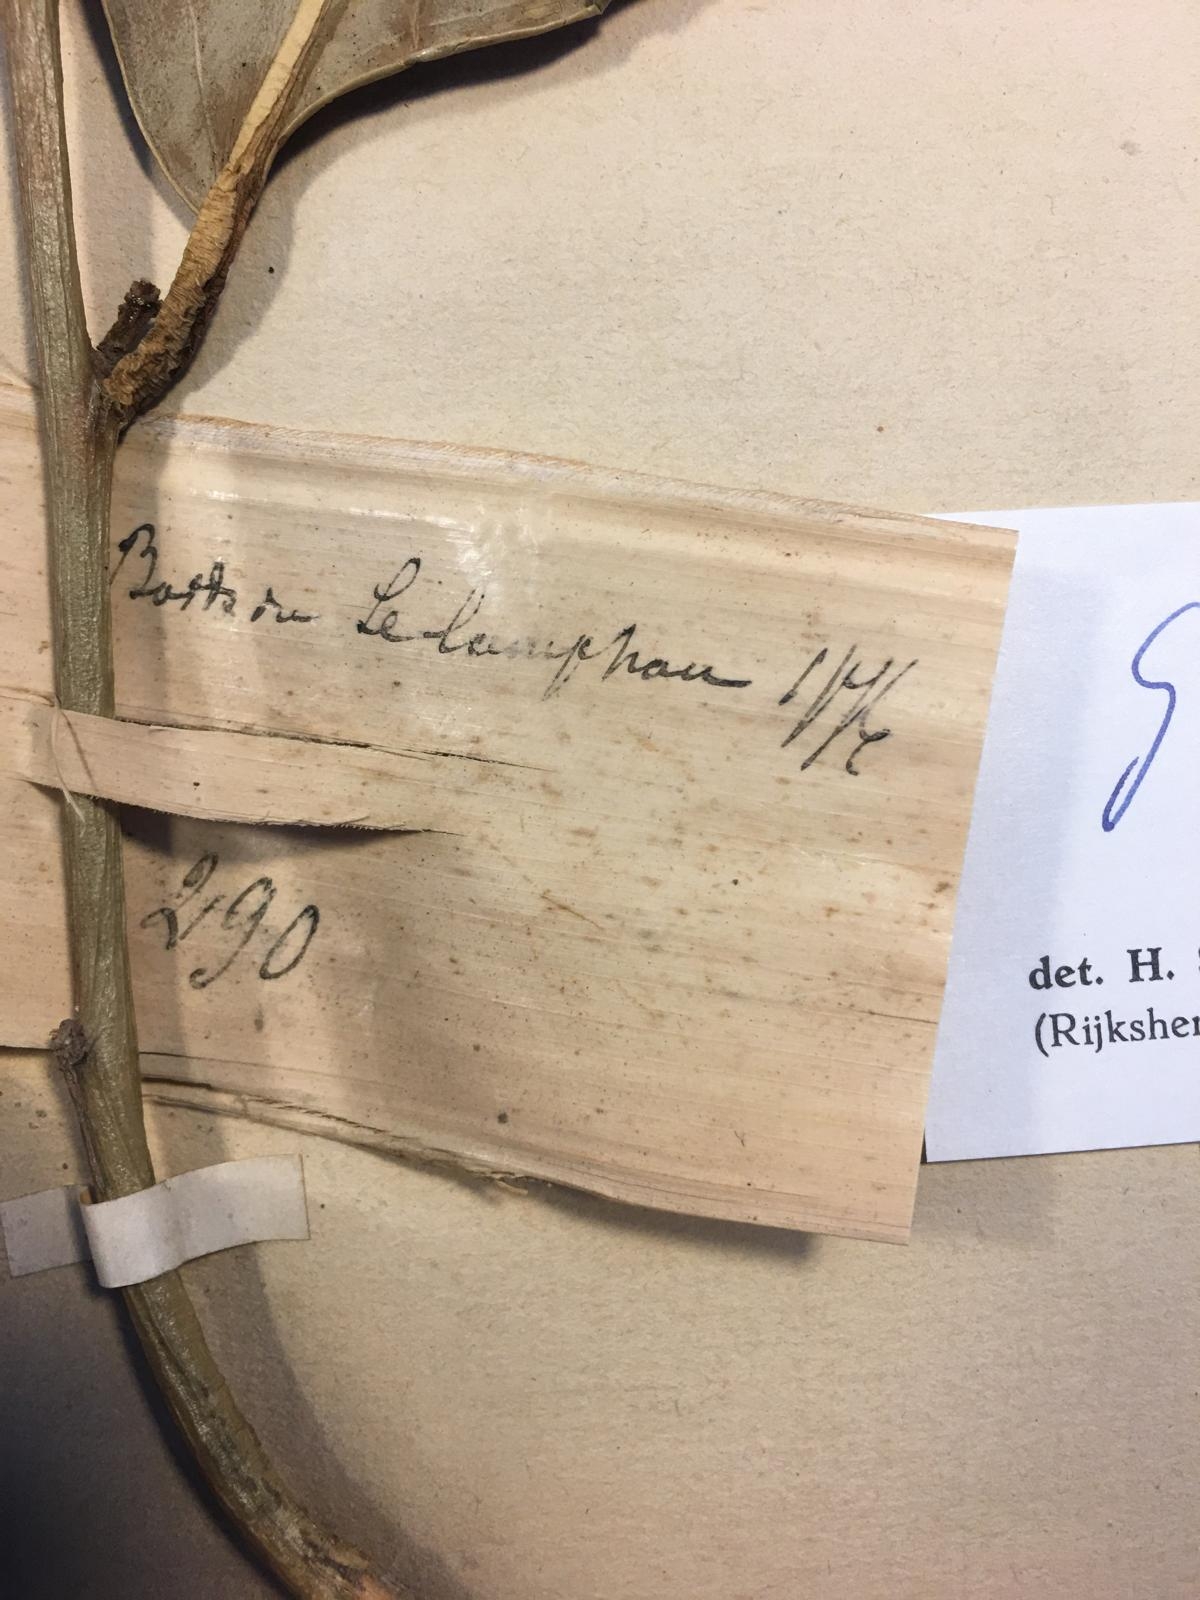 Bords du Se lamphau
290
det. H.
(Rijksher